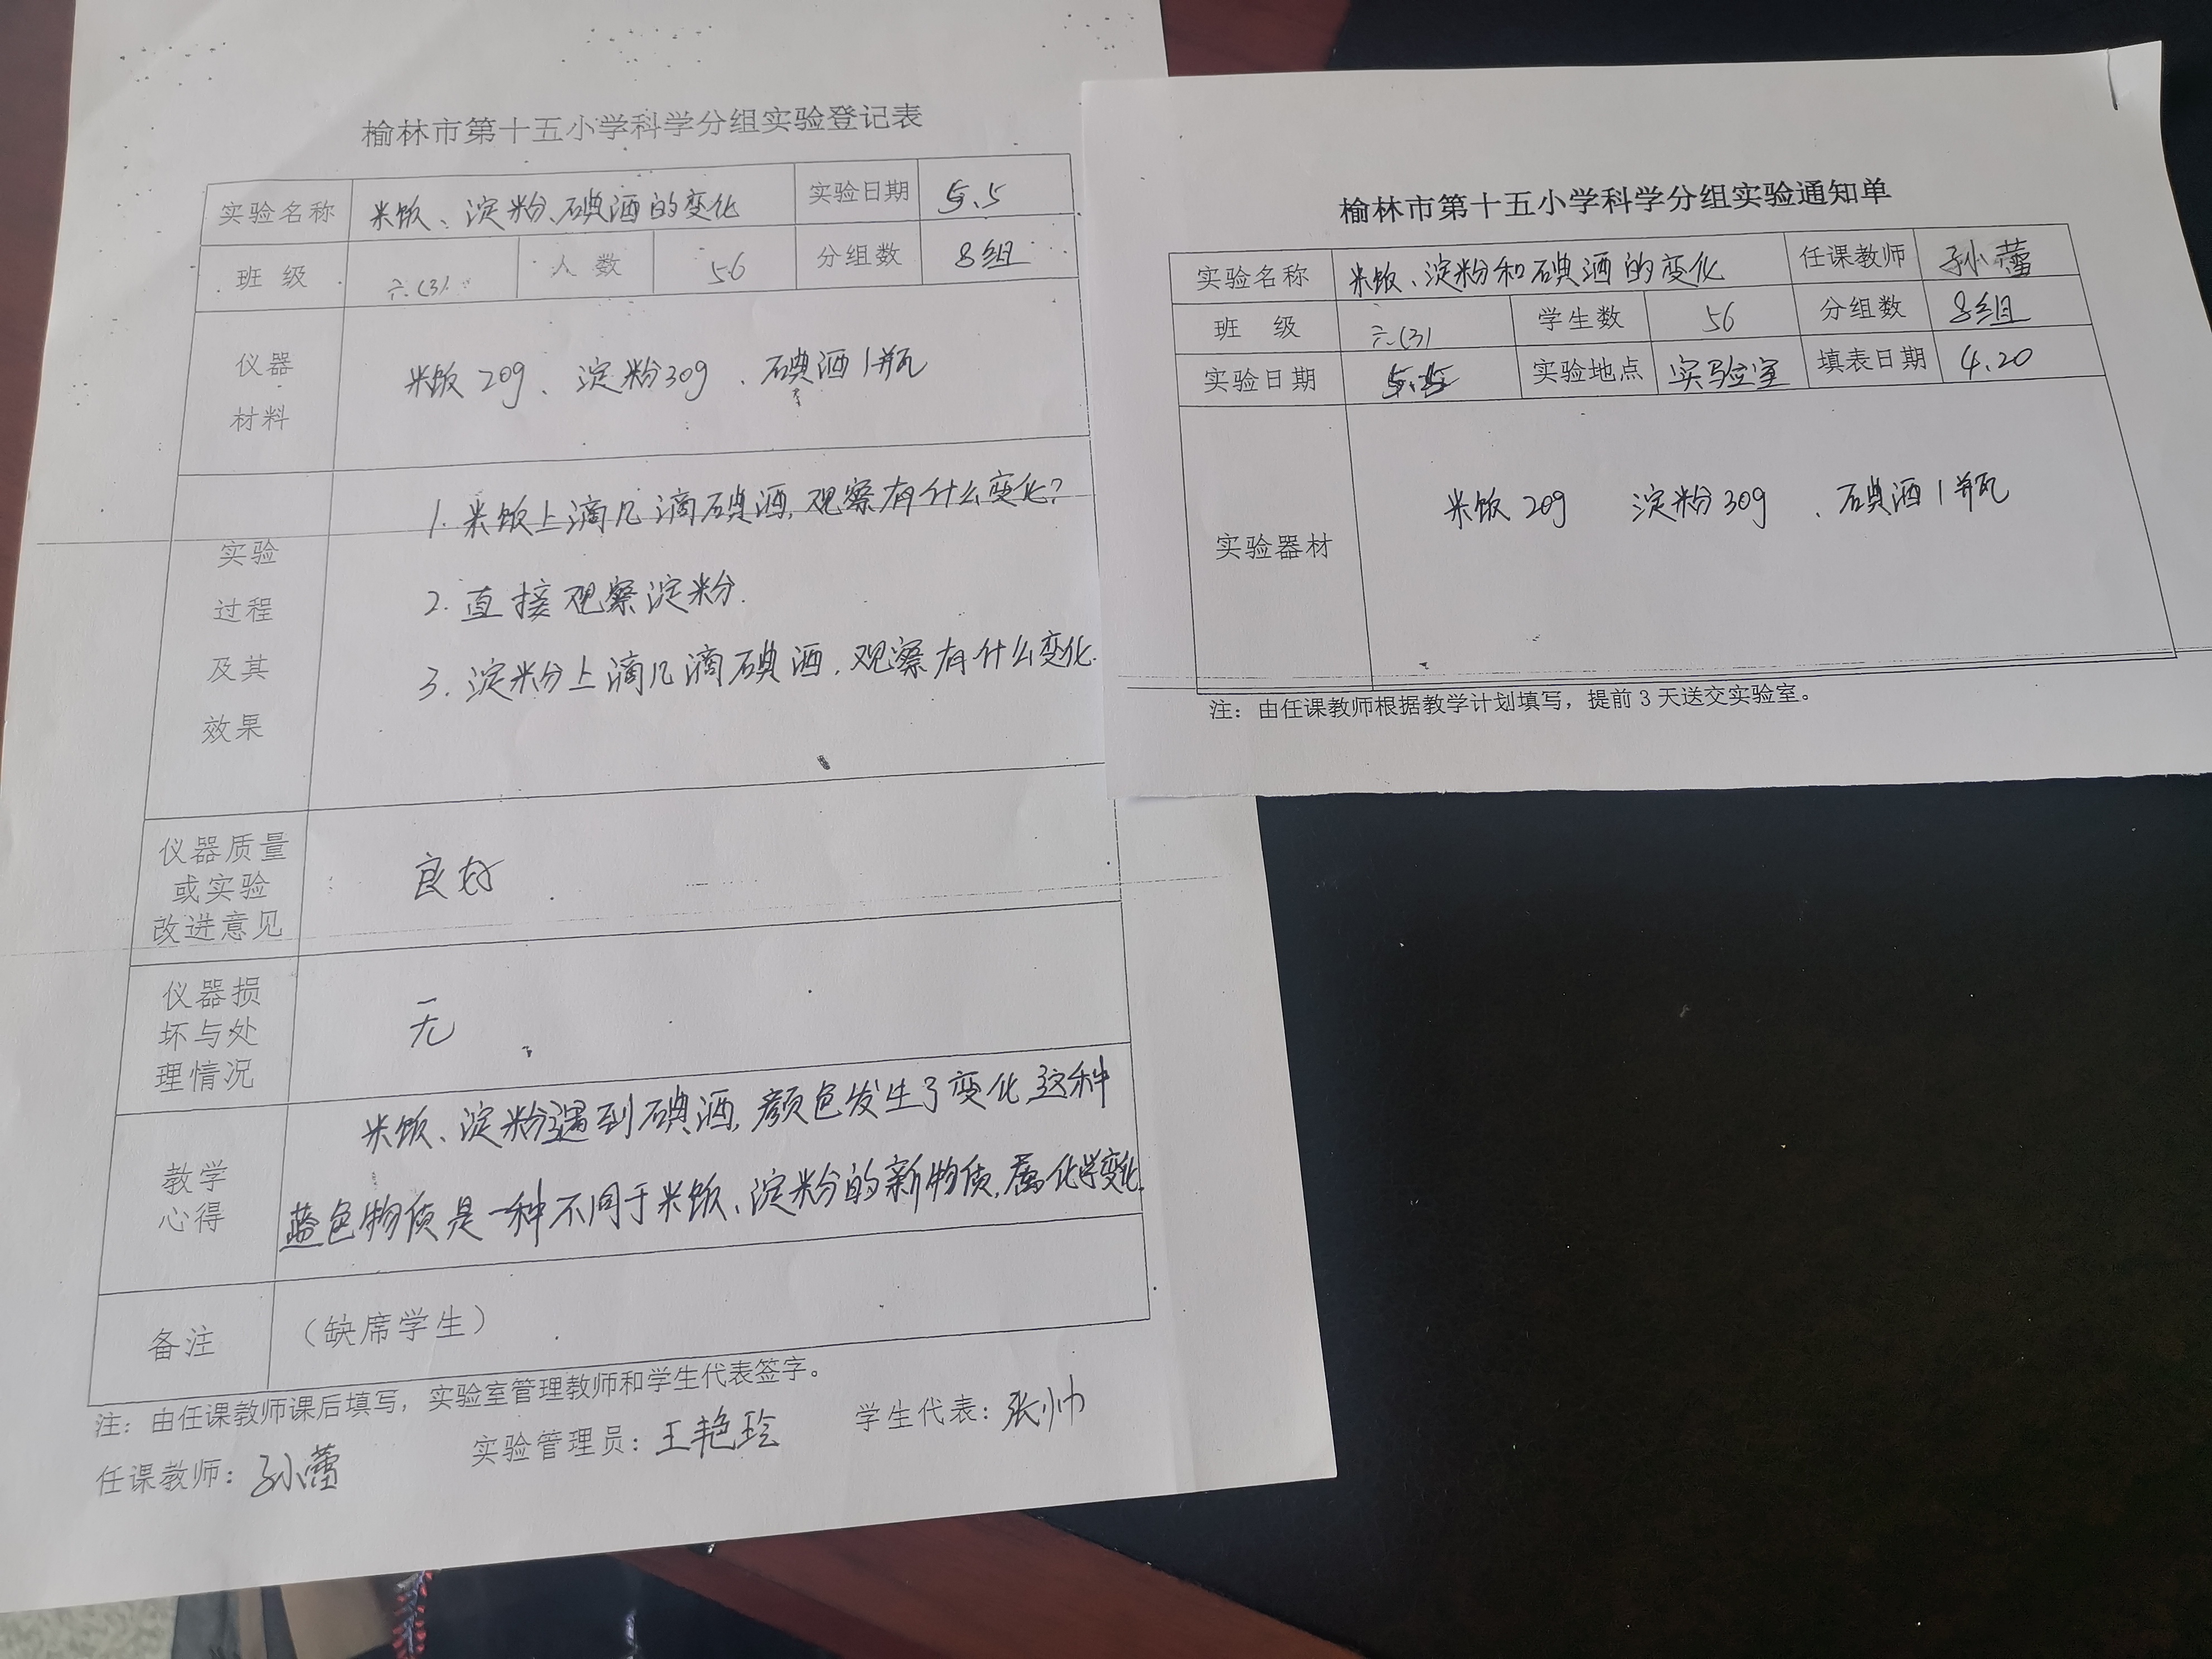 榆林市第十五小学科学分组实验登记表
实验名称 米饭、淀粉、碘酒的变化 实验日期 5.5
班 级 六(3) 人 数 56 分组数 8组
仪器
材料
米饭 20g、淀粉30g、碘酒1瓶
实验
过程
及其
效果
1. 米饭上滴几滴碘酒,观察有什么变化?
2. 直接观察淀粉.
3. 淀粉上滴几滴碘酒,观察有什么变化.
仪器质量
或实验
改进意见
良好
仪器损
坏与处
理情况
无
教学
心得
米饭、淀粉遇到碘酒,颜色发生了变化,这种
蓝色物质是一种不同于米饭、淀粉的新物质,属化学变化.
备注 (缺席学生)
注：由任课教师课后填写，实验室管理教师和学生代表签字。
任课教师：孙小蕾 实验管理员：王艳玲 学生代表：张帅
榆林市第十五小学科学分组实验通知单
实验名称 米饭、淀粉和碘酒的变化 任课教师 孙小蕾
班 级 六(3) 学生数 56 分组数 8组
实验日期 实验地点 实验室 填表日期 4.20
实验器材
米饭 20g 淀粉 30g 、碘酒1瓶
注：由任课教师根据教学计划填写，提前 3 天送交实验室。